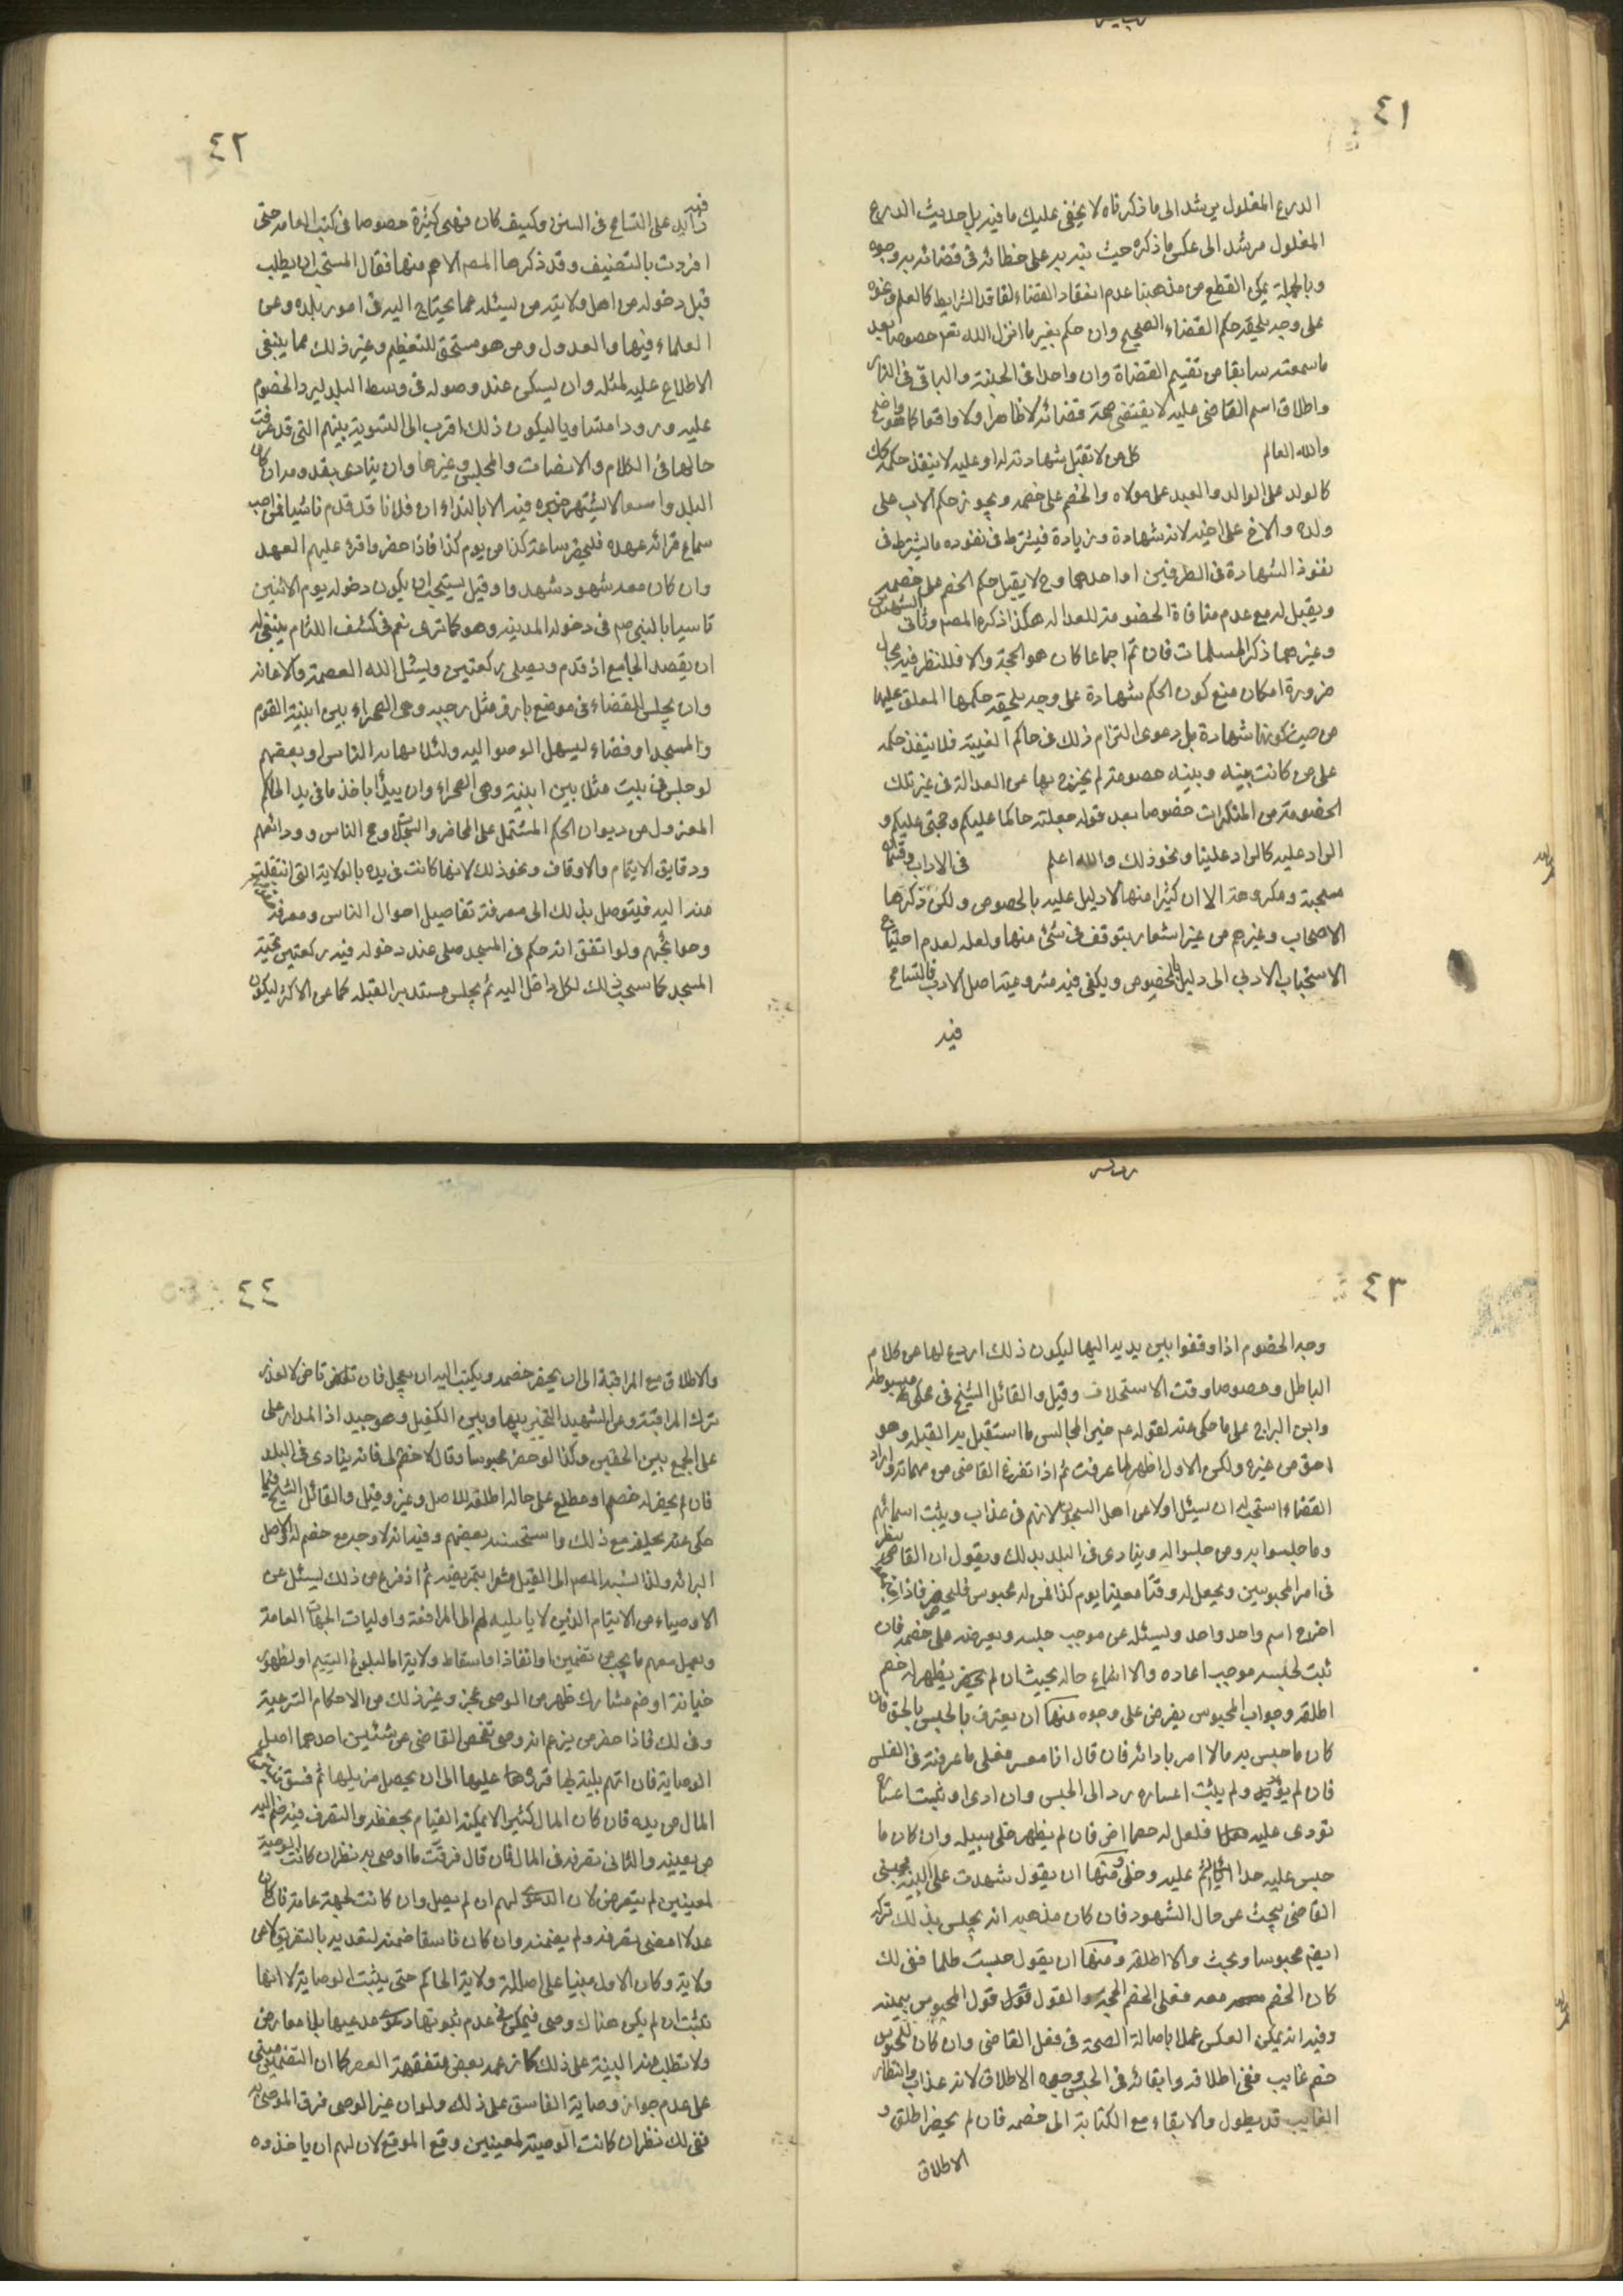 ٤١
الدرع المغلول يرشد الى ما ذكرناه لا يخفى عليك ما فيه بل حديث الدرع
المغلول مرشد الى عكس ما ذكره حيث نبه به على خطائه فى قضائه بوجوه
وبالجملة يمكن القطع من مذهبنا عدم انعقاد القضاء لفاقد الشرايط كالعلم ونحوه
على وجه يلحقه حكم القضاء الصحيح وان حكم بغير ما انزل الله تعم خصوصا بعد
ما سمعته سابقا من تقسيم القضاة وان واحدا فى الجنة والباقى فى النار
واطلاق اسم القاضى عليه لا يقتضى صحة قضائه لا ظاهرا ولا واقعا كما هو واضح
والله العالم كل من لا تقبل شهادته له او عليه لا ينفذ حكمه كك
كالولد على الوالد والعبد على مولاه والخصم على خصمه ويجوز حكم الاب على
ولده والاخ على اخيه لانه شهادة وزيادة فيشترط فى نفوذه ما يشترط فى
نفوذ الشهادة فى الطرفين او احدهما وح لا يقبل حكم الخصم على خصمه
ويقبل له مع عدم منافاة الخصومة للعدالة هكذا ذكره المصم وثانى الشهيدين
وغيرهما ذكر المسلمات فان تم اجماعا كان هو الحجة والا فللنظر فيه مجال
ضرورة امكان منع كون الحكم شهادة على وجه يلحقه حكمها المعلق عليها
من حيث كونها شهادة بل دعوى التزام ذلك فى حاكم الغيبة فلا ينفذ حكمه
على من كانت بينه وبينه خصومة لم يخرج بها عن العدالة فى غير تلك
الخصومة من المنكرات خصوصا بعد قوله جعلته حاكما عليكم وحجتى عليكم و
الراد عليه كالراد علينا ونحو ذلك والله اعلم فى الاداب وقسمان
مستحبة ومكروهة الا ان كثيرا منها لا دليل عليه بالخصوص ولكن ذكرها
الاصحاب وغيرهم من غير اشعار بتوقف فى شئ منها ولعله لعدم احتياج
الاستحباب الادبى الى دليل بالخصوص ويكفى فيه مشروعية اصل الادب فالتسامح
فيه
٤٢
فيه زايد على التسامح فى السنن وكيف كان فهى كثيرة خصوصا فى كتب العامة حتى
افردت بالتصنيف وقد ذكرها المصم الاهم منها فقال المستحب ان يطلب
قبل دخوله من اهل ولايته من يسئله عما يحتاج اليه فى امور بلده وعن
العلماء فيها والعدول ومن هو مستحق للتعظيم وغير ذلك مما ينبغى
الاطلاع عليه لمثله وان يسكن عند وصوله فى وسط البلد ليرد الخصوم
عليه ورودا متساويا ليكون ذلك اقرب الى التسوية بينهم التى قد عرفت
حالها فى الكلام والانصات والمجلس وغيرها وان ينادى بقدومه ان كان
البلد واسعا لا يشتهر خبره فيه الا بالنداء ان فلانا قد قدم قاضيا فمن احب
سماع قرائه عهده فليحضر ساعة كذا من يوم كذا فاذا حضروا قرئ عليهم العهد
وان كان معه شهود شهدوا وقيل يستحب ان يكون دخوله يوم الاثنين
تاسيا بالنبى صم فى دخوله المدينه وهو كما ترى نعم فى كشف اللثام ينبغى له
ان يقصد الجامع اذ قدم ويصلى ركعتين ويسئل الله العصمة والاعانه
وان يجلس للقضاء فى موضع بارز مثل رحبه وهى الصحراء بين ابنية القوم
والمسجد او فضاء ليسهل الوصول اليه ولئلا يهابه الناس او بعضهم
لو جلس فى بيت مثل بين ابنية وهى الصحراء وان يبدأ باخذ ما فى يد الحاكم
المعزول من ديوان الحكم المشتمل على المحاضر والسجلات وحج الناس وودائعهم
ودقايق الايتام والاوقاف ونحو ذلك لانها كانت فى يده بالولاية التى انتقلت
منه اليه فيتوصل بذلك الى معرفة تفاصيل احوال الناس ومعرفة
وحوائجهم ولو اتفق انه حكم فى المسجد صلى عند دخوله فيه ركعتين تحية
المسجد كما يستحب ذلك لكل داخل اليه ثم يجلس مستدبر القبله كما عن الاكثر ليكون
٤٣
وجه الخصوم اذا وقفوا بين يديه اليها ليكون ذلك اردع لها عن كلام
الباطل وخصوصا وقت الاستحلاف وقيل والقائل الشيخ فى محكى مبسوطه
وابن البراج على ما حكى عنه لقوله عم خير المجالس ما استقبل به القبله وهو
احق من غيره ولكن الاول اظهر لما عرفت ثم اذا تفرغ القاضى من مهماته واراد
القضاء استحب له ان يسئل اولا عن اهل السجون لانهم فى عذاب ويثبت اسمائهم
وما حبسوا به ومن حبسوا له وينادى فى البلد بذلك ويقول ان القاضى ينظر
فى امر المحبوسين ويجعل له وقتا معينا يوم كذا فمن له محبوس فليحضر فاذا اجتمعوا
اخرج اسم واحد واحد ويسئله عن موجب حبسه ويعرضه على خصمه فان
ثبت لحبسه موجب اعاده والا اشاع حاله بحيث ان لم يظهر له خصم
اطلقه وجواب المحبوس يفرض على وجوه منها ان يعترف بالحبس بالحق فان
كان ما حبس به مالا امر بادائه فان قال انا معسر فعلى ما عرفته فى الفلس
فان لم يؤد ولم يثبت اعساره رد الى الحبس وان ادى او ثبت اعساره
نودى عليه فلعل له خصما اخر فان لم يظهر خلى سبيله وان كان ما
حبس عليه حدا اقيم عليه وخلى ومنها ان يقول شهدت على البينة فحبسنى
القاضى ليبحث عن حال الشهود فان كان مذهبه انه يحبس بذلك تركه
ايضم محبوسا وبحث والا اطلقه ومنها ان يقول حبست ظلما ففى لك
كان الخصم معه فعلى الخصم الحجة والقول قول المحبوس بيمينه
وفيه انه يمكن العكس عملا باصالة الصحة فى فعل القاضى وان كان للمحبوس
خصم غايب ففى اطلاقه وابقائه فى الحبس وجوه الاطلاق لانه عذاب وانتظار
الغايب قد يطول والابقاء مع الكتابة الى خصمه فان لم يحضر اطلق و
الاطلاق
٤٤
والاطلاق مع المراقبة الى ان يحضر خصمه ويكتب اليه ان يعجل فان تاخر لا لعذر
ترك المراقبة وعن الشهيد التخيير بينها وبين الكفيل وهو جيد اذ المدار على
على الجمع بين الحقين وكذا لو حضر محبوسا وقال لا خصم لى فانه ينادى فى البلد
فان لم يحضر له خصم او مطلع على حاله اطلقه للاصل وغيره وقيل والقائل الشيخ فيما
حكى عنه يحلفه مع ذلك واستحسنه بعضهم وفيه انه لا وجه مع خصم له الاصل
البرائه ولذا نسبه المصم الى القيل مشعرا بتمريضه ثم اذ فرغ من ذلك يسئل عن
الاوصياء من الايتام الذين لا ياب ليه لهم الى المرافعة واوليات الجهات العامة
ويعمل معهم ما يجب من تضمين او انفاذ او اسقاط ولاية اما لبلوغ اليتيم او لظهور
خيانة او ضم مشارك ظهر من الوصى عجز وغير ذلك من الاحكام الشرعية
وفى لك فاذا حضر من يزعم انه وصى تفحص القاضى عن شئين احدهما اصل
الوصاية فان اتهم بلية لها قررها عليها الى ان يحصل مزيلها ثم فسق
المال من يده فان كان المال كثيرا لا يمكنه القيام بحفظه والتصرف فيه ضم اليه
من يعينه والثانى تصرفه فى المال فان قال فرقت ما اوصى به نظر ان كانت الوصية
لمعينين لم يتعرض لان الدعوى لهم ان لم يصل وان كانت لجهة عامة فان كان
عدلا امضى تصرفه ولم يضمنه وان كان فاسقا ضمنه لتعديه بالتفريق لا عن
ولاية وكان الاول مبنيا على اصالة ولاية الحاكم حتى يثبت الوصاية لا انها
تثبت ان لم يكن هناك وصى فيمكن فى عدم ثبوتها دعوى مدعيها بلا معارض
ولا تطلب منه البينة على ذلك كما زعمه بعض متفقهة العصر كما ان التضمين مبنى
على عدم جواز وصاية الفاسق عمل ذلك ولو ان غير الوصى فرق الموصى به
ففى لك نظر ان كانت الوصية لمعينين وقع الموقع لان لهم ان ياخذوه